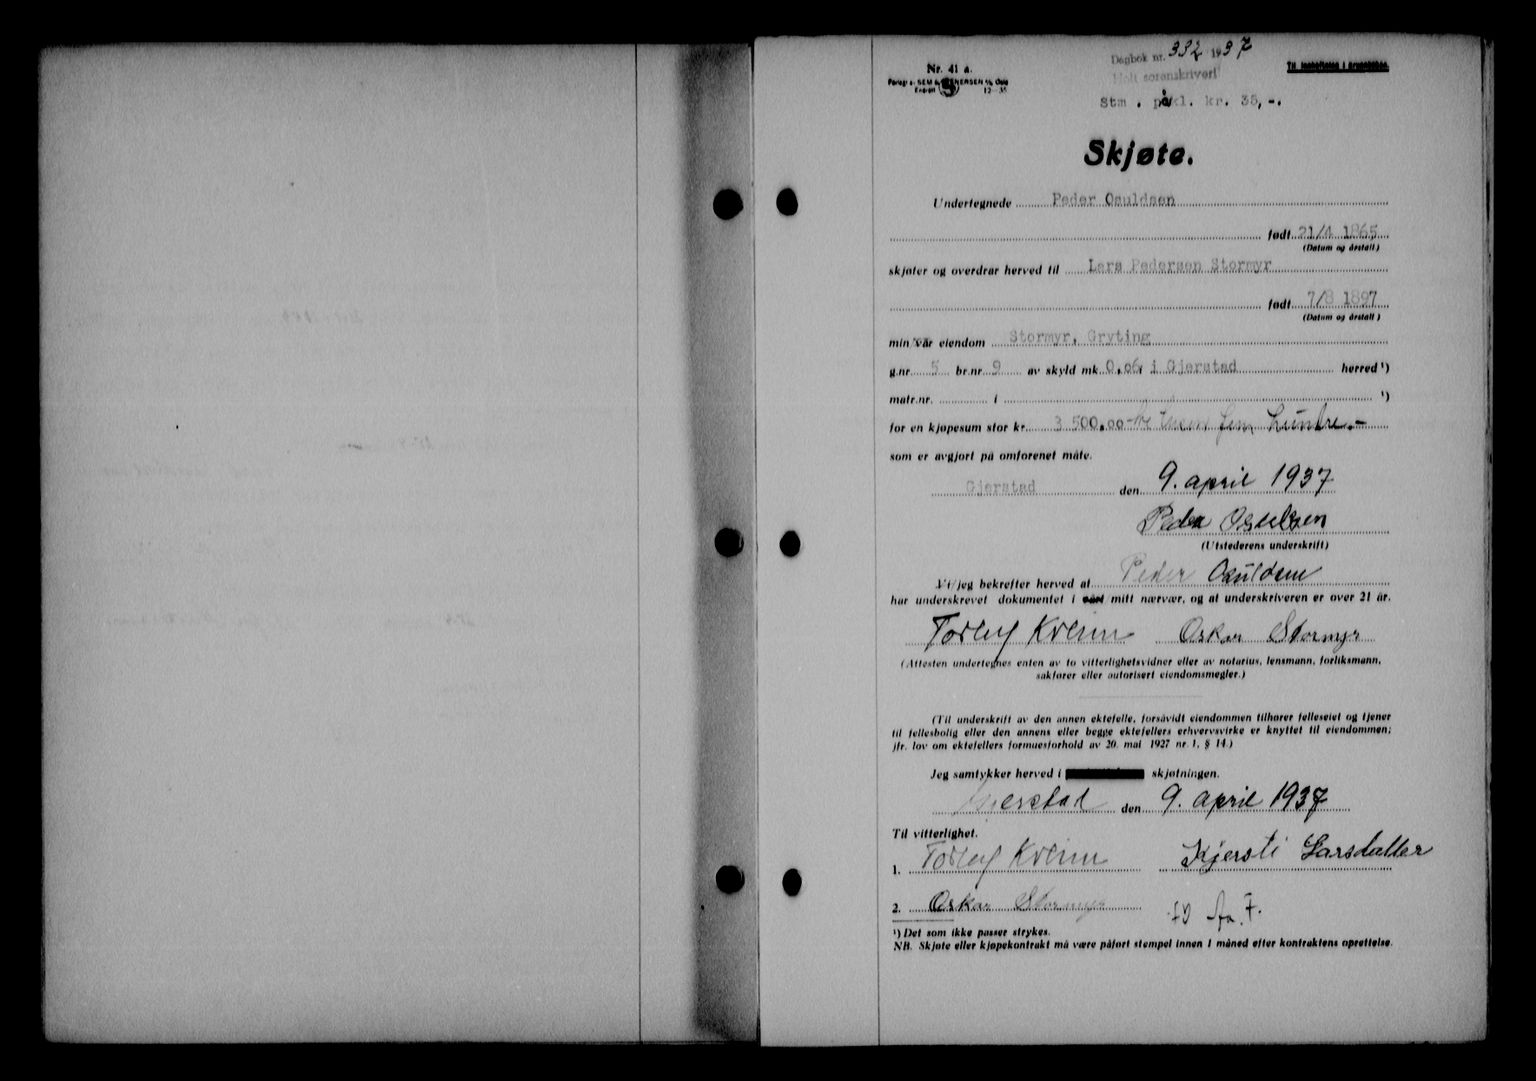 Nr. 41 a.
Dagbok nr. 332 1937
Holt sorenskriveri
Til innheftelse i grunnboken.
12-35
Stm. på kl. kr. 35,-.
Skjøte.
Undertegnede Peder Osuldsen
født 21/4 1865
(Datum og årstall)
skjøter og overdrar herved til Lars Pedersen Stormyr
født 7/8 1897
(Datum og årstall)
min/vår eiendom Stormyr, Gryting
g.nr. 5 br.nr 9 av skyld mk. 0,06 i Gjerstad herred ¹)
matr.nr. i ¹)
for en kjøpesum stor kr. 3 500,00 - fem hundre.-
som er avgjort på omforenet måte.
Gjerstad den 9. april 1937
Peder Osuldsen
(Utstederens underskrift)
Vi/jeg bekrefter herved at Peder Osuldsen
har underskrevet dokumentet i vårt mitt nærvær, og at underskriveren er over 21 år.
Torleif Kveim Oskar Stormyr
(Attesten undertegnes enten av to vitterlighetsvidner eller av notarius, lensmann, forliksmann,
sakfører eller autorisert eiendomsmegler.)
(Til underskrift av den annen ektefelle, forsåvidt eiendommen tilhører felleseiet og tjener
til fellesbolig eller den annens eller begge ektefellers erhvervsvirke er knyttet til eiendommen;
jfr. lov om ektefellers formuesforhold av 20. mai 1927 nr. 1, § 14.)
Jeg samtykker herved i skjøtningen.
Gjerstad den 9. april 1937
Til vitterlighet.
1. Torleif Kveim Kjersti Larsdatter
2. Oskar Stormyr
¹) Det som ikke passer strykes.
NB. Skjøte eller kjøpekontrakt må være påført stempel innen 1 måned efter kontraktens oprettelse.